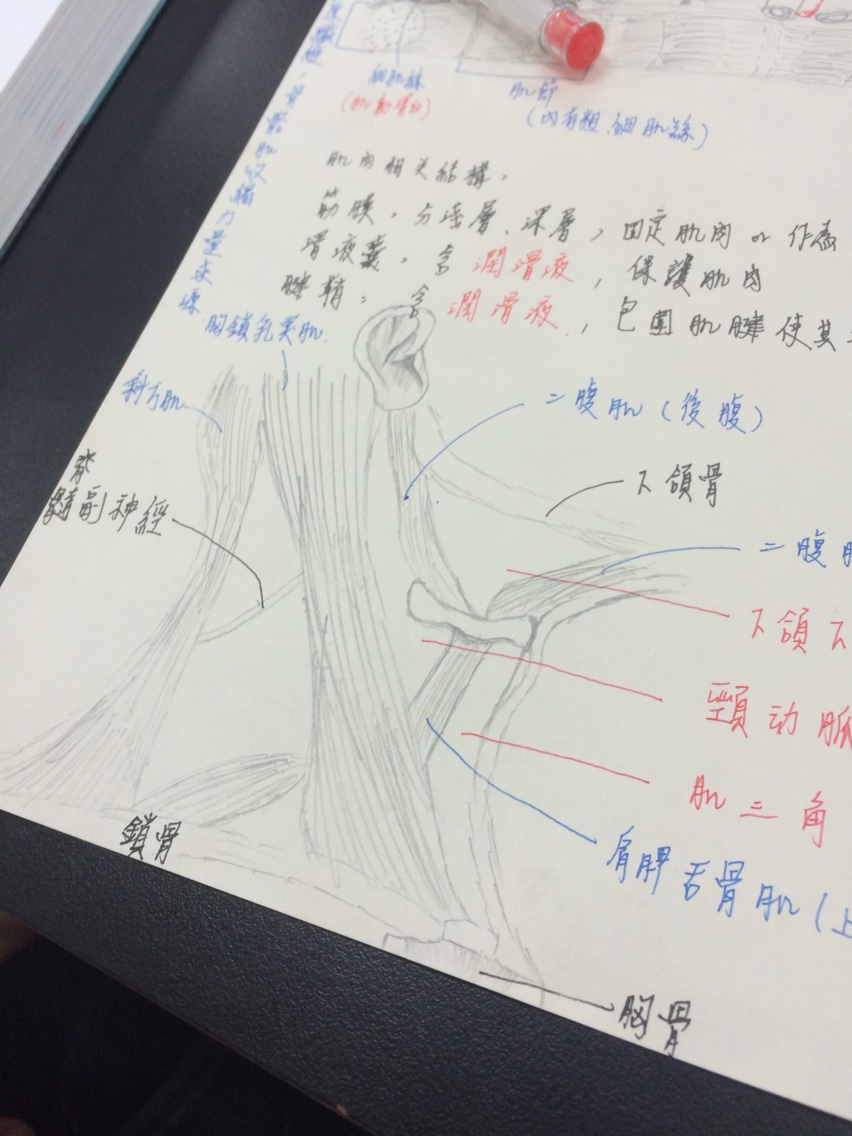 細肌絲
(肌動蛋白)
肌節
(內有粗.細肌絲)
肌肉相关結構。
筋膜。分淺層.深層，固定肌肉 or 作為
滑液囊。含 潤滑液，保護肌肉
腱鞘。含 潤滑液.，包圍肌腱使其
胸鎖乳突肌.
斜方肌
二腹肌(後腹)
下頜骨
脊髓副神經
二腹肌
下頜下
頸动脈
肌三角
肩胛舌骨肌(上
鎖骨
胸骨